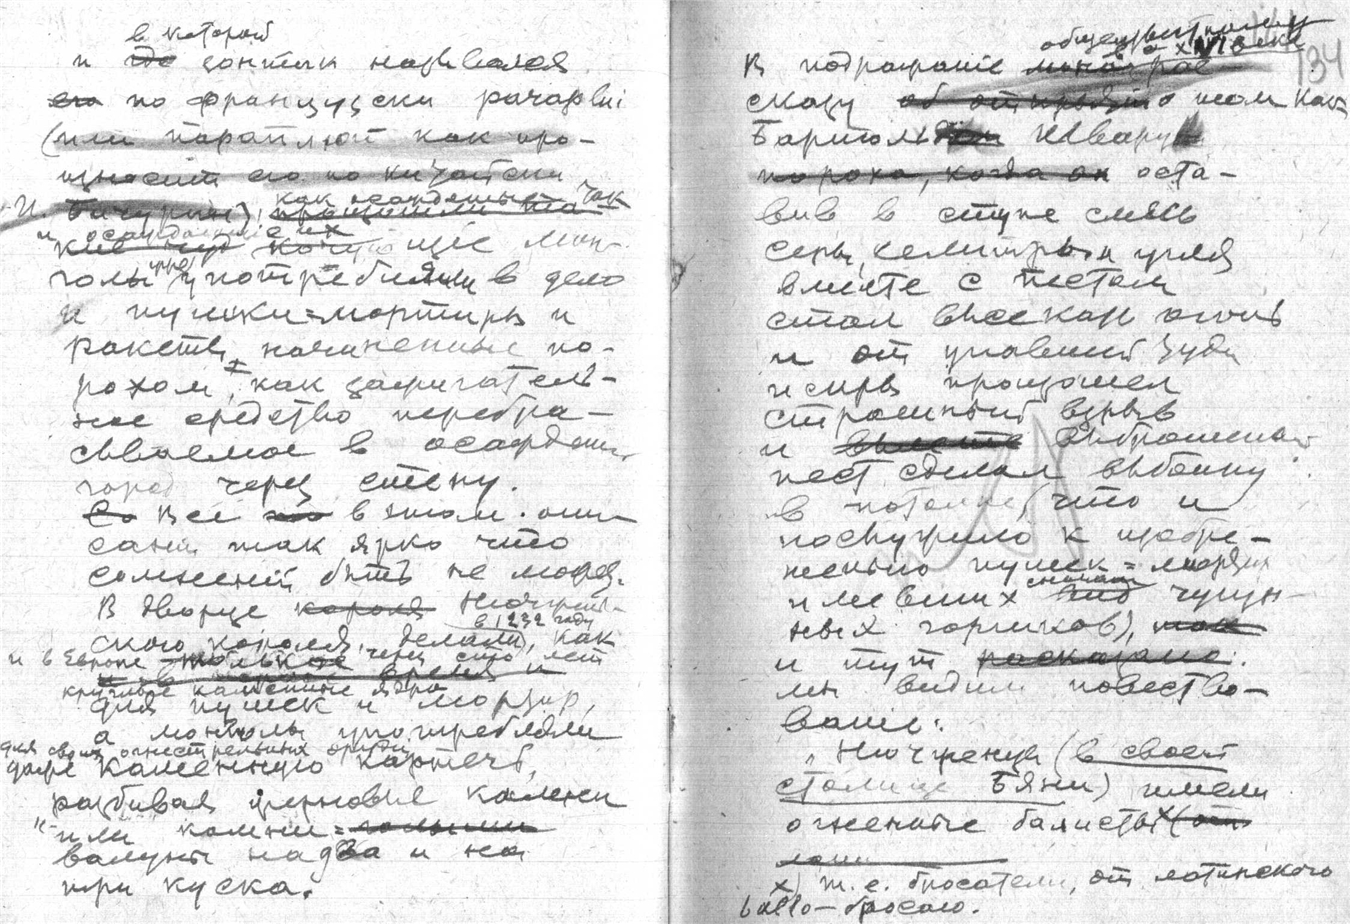 в которой
и где зонтик назывался
его по французски
(или параплюй как про-
износит его по китайски
Бичурин), как осажденные так
и осаждавшие их
кие чуд кочующие мон-
голы употребляли в дело
и пушки-мортиры и
ракеты, начиненные по-
рохом, как зажигатель-
ное средство перебра-
сываемое в осажден.
город через стену.
Все это в этом опи-
сании так ярко что
сомнений быть не может.
В дворце короля Нючжень-
в 1232 году
ского короля, делали, как
и в Европе только через сто лет
и в первое время и
круглые каменные ядра
для пушек и мортир,
а монголы употребляли
для своих огнестрельных орудий
даже каменную картечь,
разбивая жерновые камни
или камни-
валуны на два и на
три куска.
134
общеизвестном
в XVI веке
В подражание
сказу об открытии о том как
Бертольд Шварц
пороха, когда он оста-
вив в ступе смесь
серы, селитры и угля
вместе с пестом
стал высекать огонь
и от упавшей туда
искры произошел
страшный взрыв
и вместе выброшенный
пест сделал выбоину
в потолке, что и
послужило к изобре-
тению пушек-мортир
имевших сначала вид чугун-
ных горшков), так
и тут рассказано:
мы видим повество-
вание:
„Нючженцы (в своей
столице Бяни) имели
огненные балисты x) (от
x) т.е. бросатели, от латинского
ballo — бросаю.